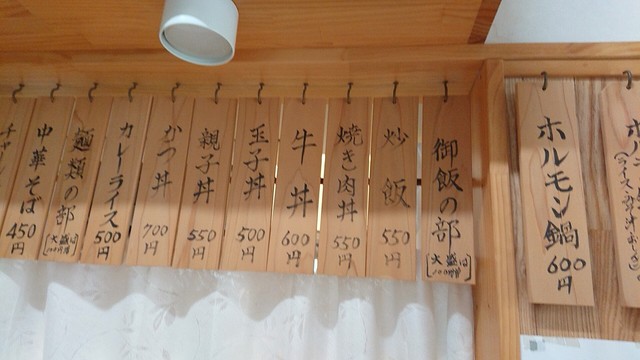 ホルモン鍋 600円
御飯の部 (大盛は100円増)
炒飯 550円
焼き肉丼 550円
牛丼 600円
玉子丼 500円
親子丼 550円
かつ丼 700円
カレーライス 500円
麺類の部 (大盛は100円増)
中華そば 450円
チャー
円